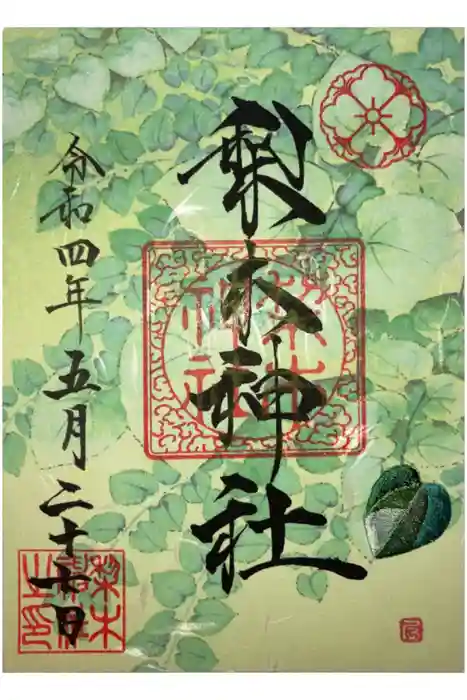 梨木神社
令和四年五月二十七日
梨木
神社
梨木
神社
之印